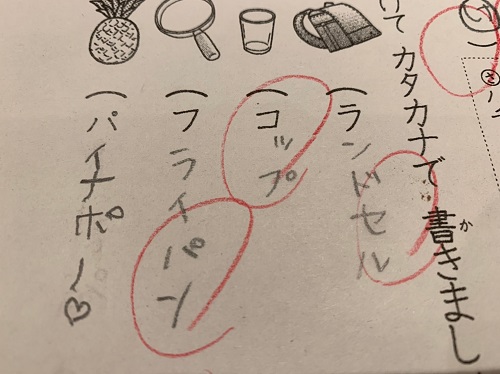 けて カタカナで 書きまし
か
(ランドセル
(コップ
(フライパン
(パイナポー♡